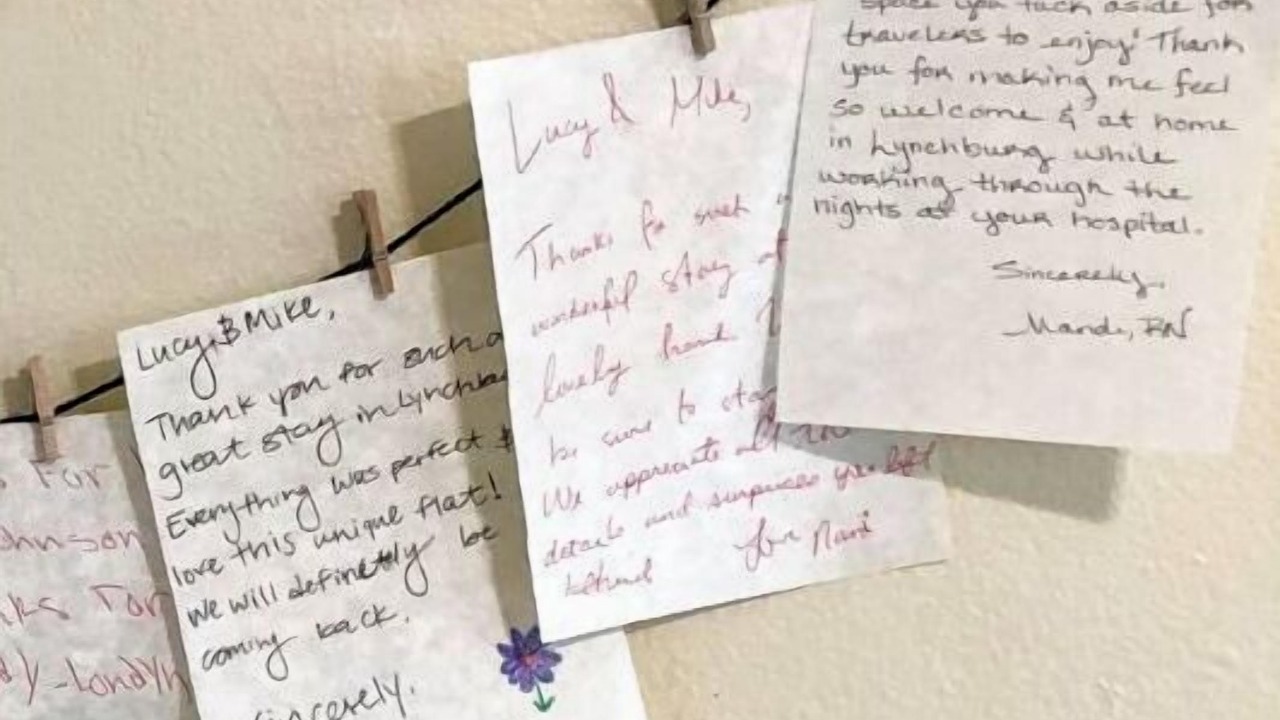 For
ohnson
ks For
dy-Londyn
Lucy & Mike,
Thank you for such a
great stay in Lynchbu
Everything was perfect &
love this unique flat!
We will definetly be
coming back.
Sincerely,
Lucy & Mike,
Thanks for such
wonderful stay at
lovely
be sure to sta
We appreciate all
details and surprises you left
behind
Love
space you tuck aside for
travelers to enjoy! Thank
you for making me feel
so welcome & at home
in Lynchburg while
working through the
nights at your hospital.
Sincerely,
Mandi, RN